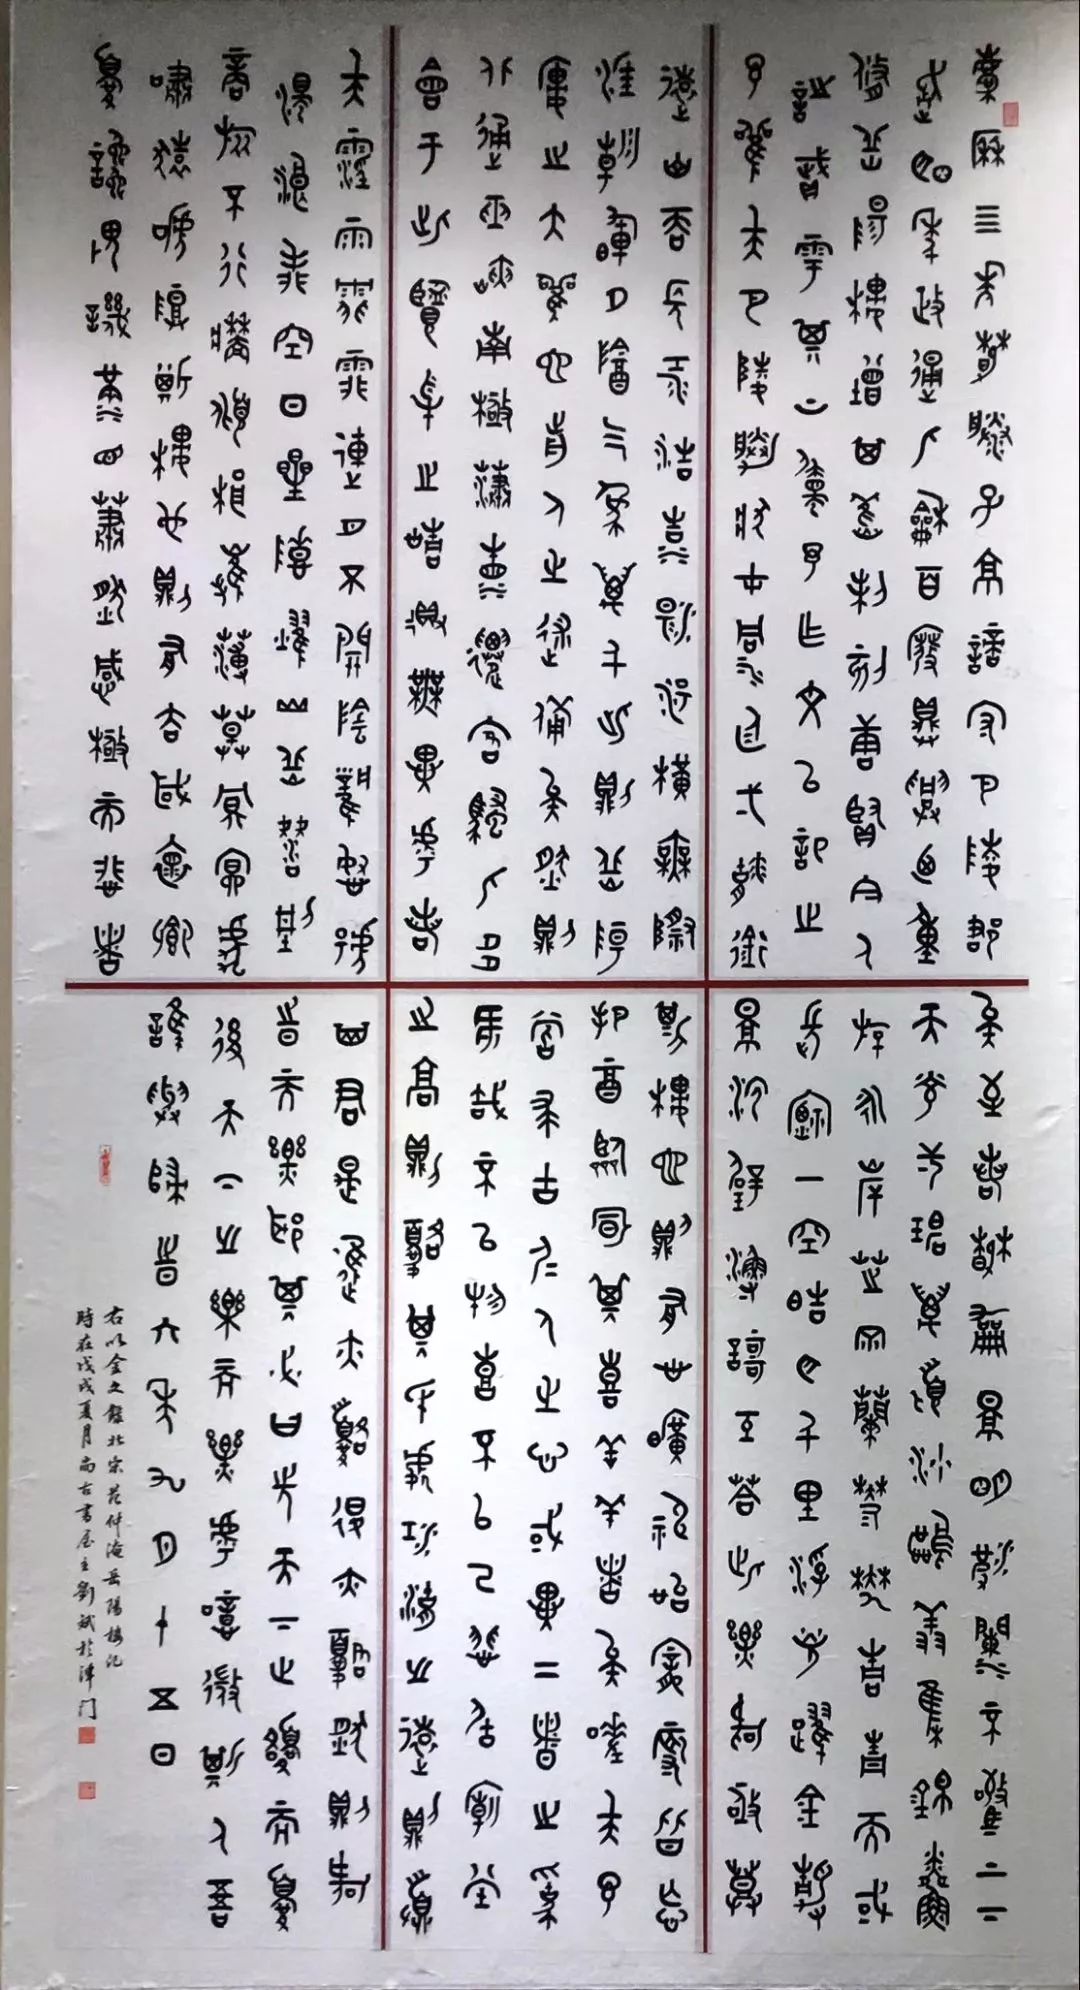 慶曆四年春滕子京謫守巴陵郡
越明年政通人和百廢具興乃重
修岳陽樓增其舊制刻唐賢今人
詩賦于其上屬予作文以記之
予觀夫巴陵勝狀在洞庭一湖銜
遠山吞長江浩浩湯湯橫無際
涯朝暉夕陰氣象萬千此則岳陽
樓之大觀也前人之述備矣然則
北通巫峽南極瀟湘遷客騷人多
會于此覽物之情得無異乎若
夫霪雨霏霏連月不開陰風怒號
濁浪排空日星隱耀山岳潛形
商旅不行檣傾楫摧薄暮冥冥虎
嘯猿啼登斯樓也則有去國懷鄉
憂讒畏譏滿目蕭然感極而悲者
矣至若春和景明波瀾不驚上下
天光一碧萬頃沙鷗翔集錦鱗
游泳岸芷汀蘭鬱鬱青青而或
長煙一空皓月千里浮光躍金靜
影沉璧漁歌互答此樂何極登
斯樓也則有心曠神怡寵辱皆忘
把酒臨風其喜洋洋者矣嗟夫予
嘗求古仁人之心或異二者之為
何哉不以物喜不以己悲居廟堂
之高則憂其民處江湖之遠則憂
其君是進亦憂退亦憂然則何
時而樂耶其必曰先天下之憂而憂
後天下之樂而樂乎噫微斯人吾
誰與歸時六年九月十五日
右以金文錄北宋范仲淹岳陽樓記
時在戊戌夏月尚古書屋主劉斌於津門